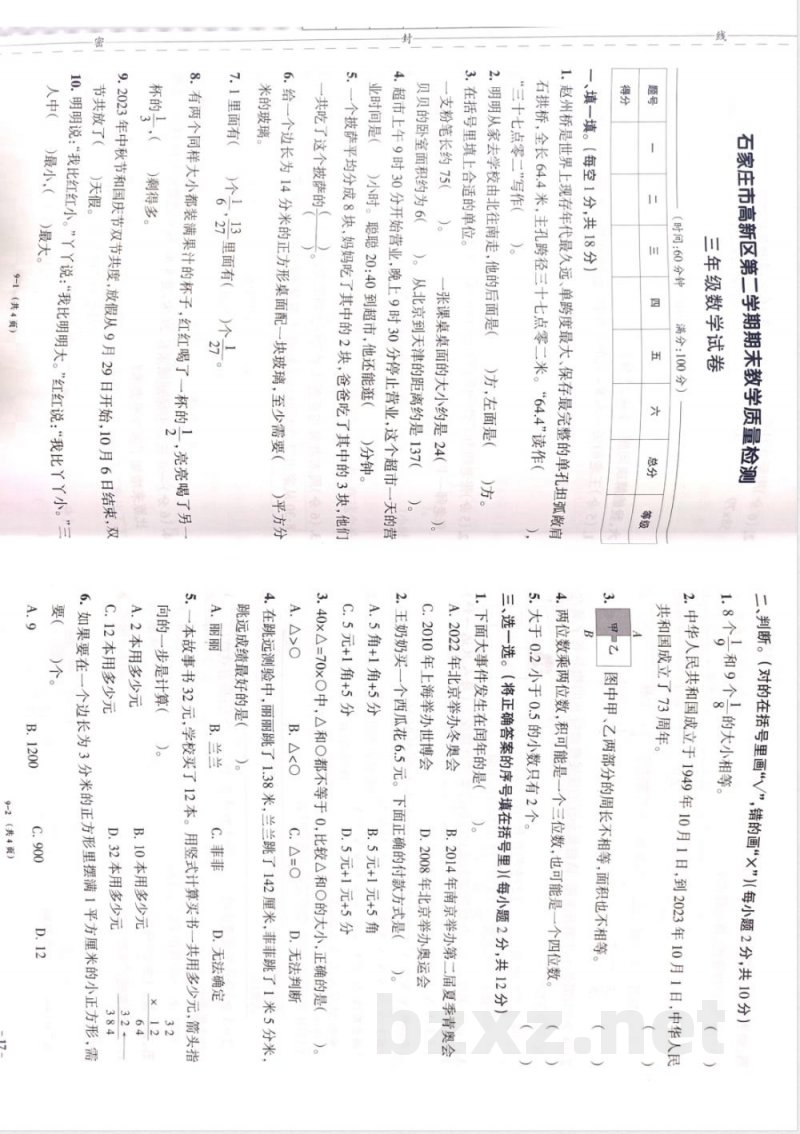 密 封 线
石家庄市高新区第二学期期末教学质量检测
三年级数学试卷
(时间:60分钟 满分:100分)
题号 一 二 三 四 五 六 总分 等级
得分
一、填一填。(每空1分,共18分)
1. 赵州桥是世界上现存年代最久远、单跨度最大、保存最完整的单孔坦弧敞肩
石拱桥,全长64.4米,主孔跨径三十七点零二米。“64.4”读作( ),
“三十七点零二”写作( )。
2. 明明从家去学校由北往南走,他的后面是( )方,左面是( )方。
3. 在括号里填上合适的单位。
一支粉笔长约75( )。 一张课桌桌面的大小约是24( )。
贝贝的卧室面积约为6( )。 从北京到天津的距离约是137( )。
4. 超市上午9时30分开始营业,晚上9时30分停止营业,这个超市一天的营
业时间是( )小时。聪聪20:40到超市,他还能逛( )分钟。
5. 一个披萨平均分成8块,妈妈吃了其中的2块,爸爸吃了其中的3块,他们
一共吃了这个披萨的( )/( )。
6. 给一个边长为14分米的正方形桌面配一块玻璃,至少需要( )平方分
米的玻璃。
7. 1里面有( )个1/6,13/27里面有( )个1/27。
8. 有两个同样大小都装满果汁的杯子,红红喝了一杯的1/2,亮亮喝了另一
杯的1/3,( )剩得多。
9. 2023年中秋节和国庆节双节共度,放假从9月29日开始,10月6日结束,双
节共放了( )天假。
10. 明明说:“我比红红小。”丫丫说:“我比明明大。”红红说:“我比丫丫小。”三
人中( )最小,( )最大。
9-1 (共4页)
二、判断。(对的在括号里画“√”,错的画“×”)(每小题2分,共10分)
1. 8个1/9和9个1/8的大小相等。 ( )
2. 中华人民共和国成立于1949年10月1日,到2023年10月1日,中华人民
共和国成立了73周年。 ( )
3. A 甲 乙 B 图中甲、乙两部分的周长不相等,面积也不相等。 ( )
4. 两位数乘两位数,积可能是一个三位数,也可能是一个四位数。 ( )
5. 大于0.2小于0.5的小数只有2个。 ( )
三、选一选。(将正确答案的序号填在括号里)(每小题2分,共12分)
1. 下面大事件发生在闰年的是( )。
A. 2022年北京举办冬奥会 B. 2014年南京举办第二届夏季青奥会
C. 2010年上海举办世博会 D. 2008年北京举办奥运会
2. 王奶奶买一个西瓜花6.5元。下面正确的付款方式是( )。
A. 5角+1角+5分 B. 5元+1元+5角
C. 5元+1角+5分 D. 5元+1元+5分
3. 40×△=70×○中,△和○都不等于0,比较△和○的大小,正确的是( )。
A. △>○ B. △<○ C. △=○ D. 无法判断
4. 在跳远测验中,丽丽跳了1.38米,兰兰跳了142厘米,菲菲跳了1米5分米,
跳远成绩最好的是( )。
A. 丽丽 B. 兰兰 C. 菲菲 D. 无法确定
5. 一本故事书32元,学校买了12本。用竖式计算买书一共用多少元,箭头指
向的一步是计算( )。
A. 2本用多少元 B. 10本用多少元
C. 12本用多少元 D. 32本用多少元
32
×12
64
32←
384
6. 如果要在一个边长为3分米的正方形里摆满1平方厘米的小正方形,需
要( )个。
A. 9 B. 1200 C. 900 D. 12
9-2 (共4页)
-17-
bzxz.net